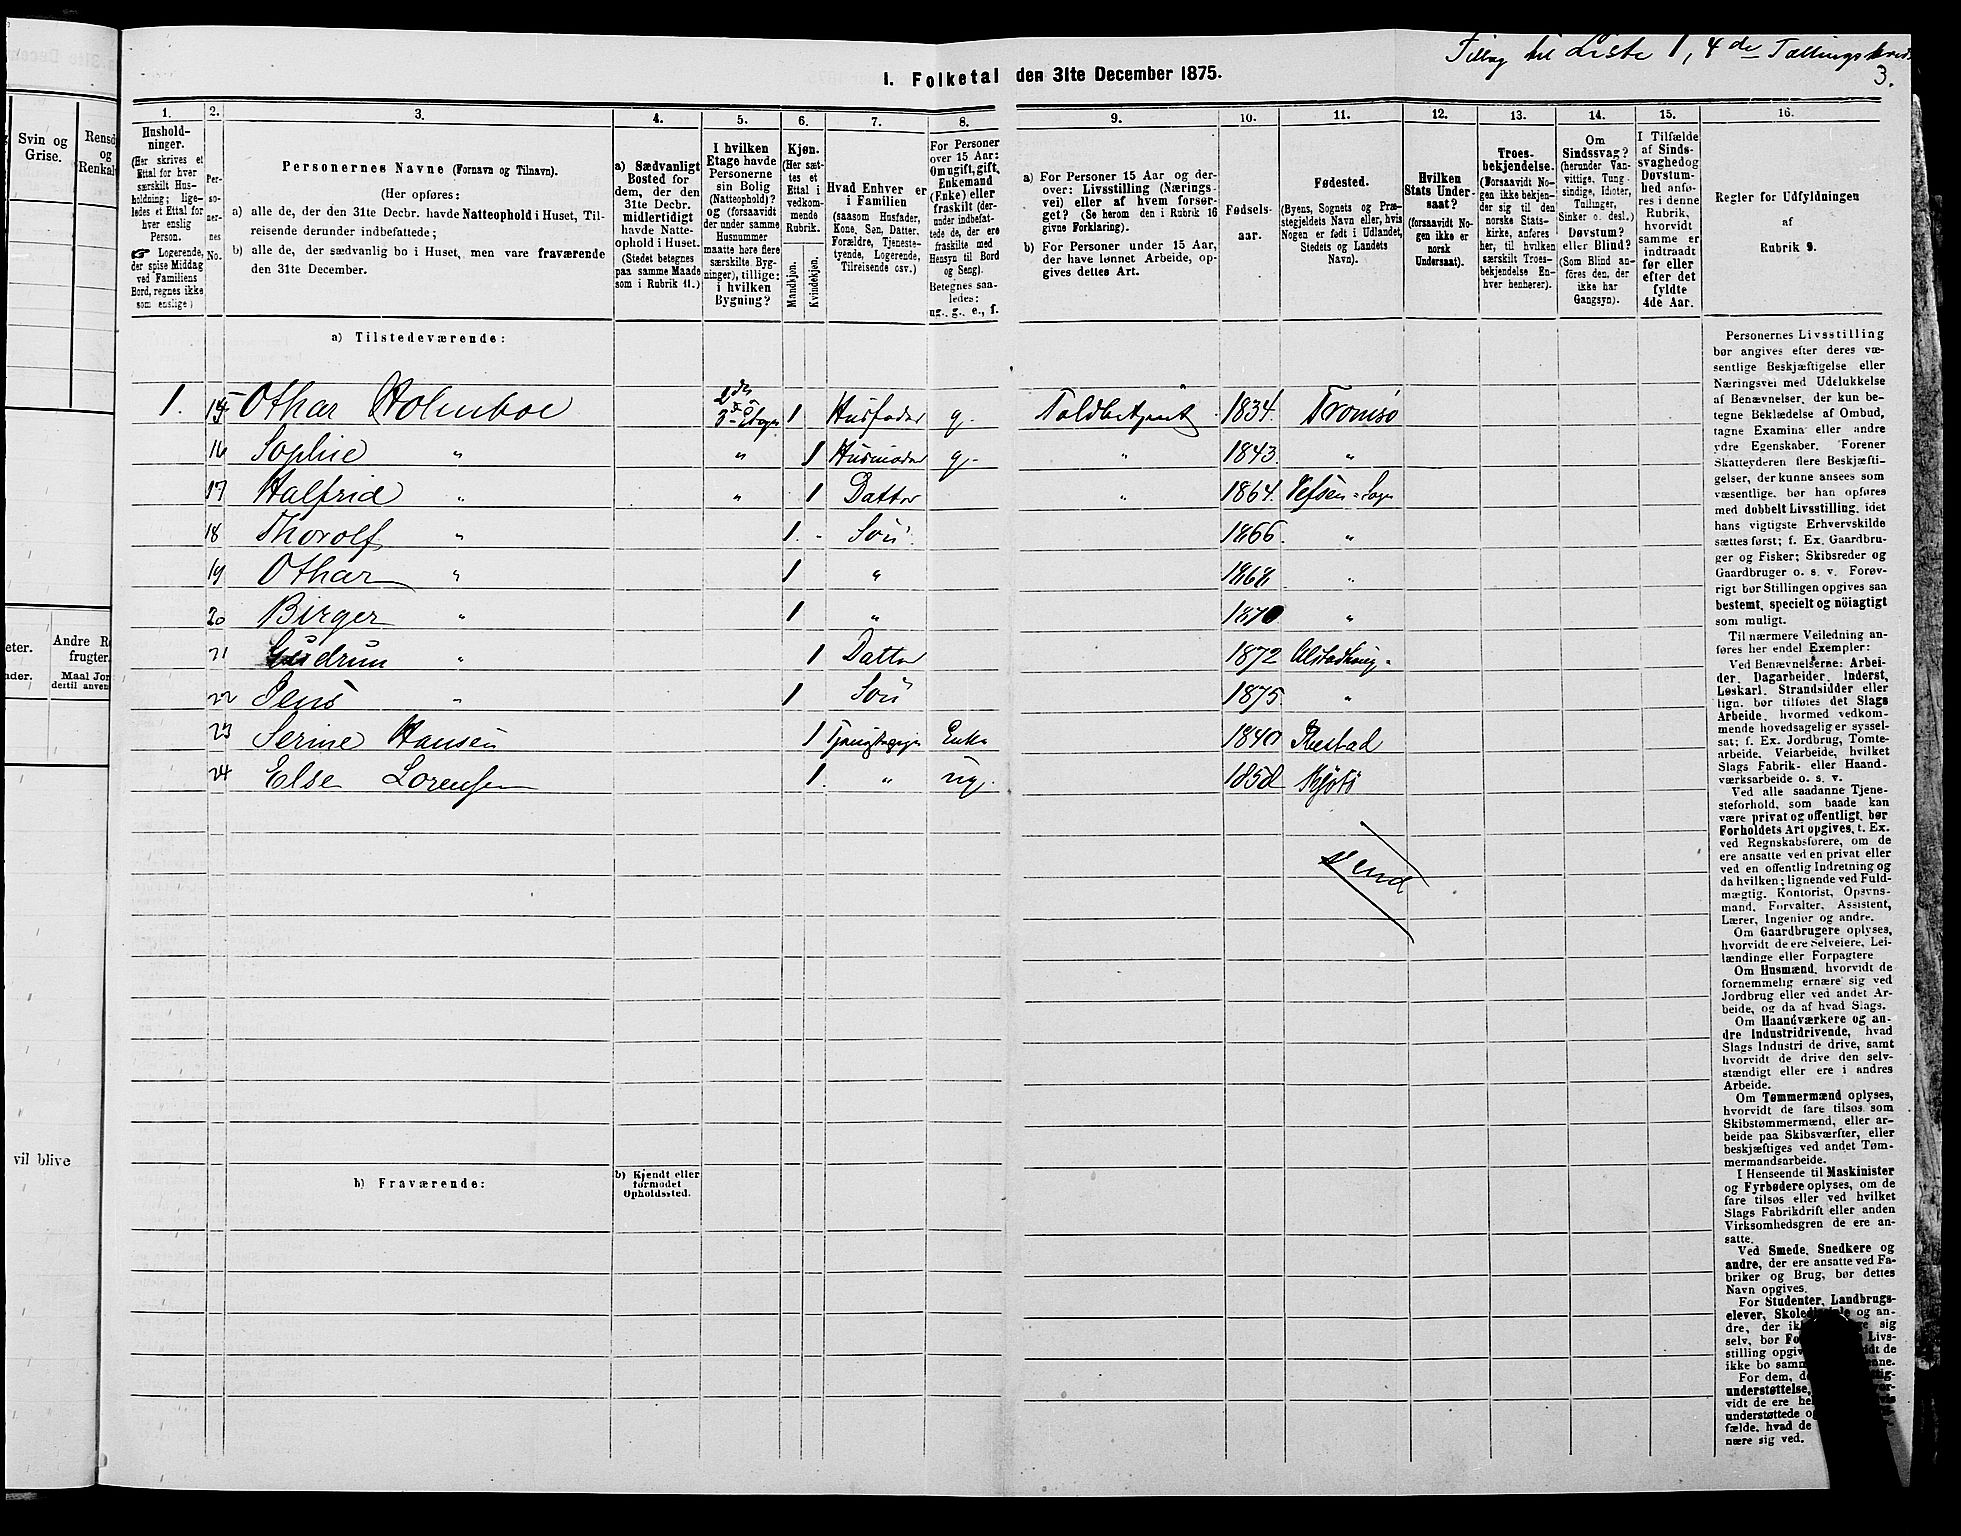 31te Decem
Svin og
Grise.
Rensd
og
Renkalv
eter.
Andre R
frugter.
nder.
Maal Jor
dertil anven
vil blive
Tillæg til Liste 1, 4de Tællingskreds
3.
I. Folketal den 31te December 1875.
1. 2. 3. 4. 5. 6. 7. 8. 9. 10. 11. 12. 13. 14. 15. 16.
Hushold-
ninger.
(Her skrives et
Ettal for hver
særskilt Hus-
holdning; lige-
ledes et Ettal for
hver enslig
Person.
☞ Logerende,
der spise Middag
ved Familiens
Bord, regnes ikke
som enslige)
Per-
so-
ner-
nes
No.
Personernes Navne (Fornavn og Tilnavn).
(Her opføres:
a) alle de, der den 31te Decbr. havde Natteophold i Huset, Til-
reisende derunder indbefattede;
b) alle de, der sædvanlig bo i Huset, men vare fraværende
den 31te December.
a) Sædvanligt
Bosted for
dem, der den
31te Decbr.
midlertidigt
havde Natte-
ophold i Huset.
(Stedet betegnes
paa samme Maade
som i Rubrik 11.)
I hvilken
Etage havde
Personerne
sin Bolig
(Natteophold)?
og (forsaavidt
der under samme
Husnummer
maatte høre flere
særskilte Byg-
ninger), tillige:
i hvilken
Bygning?
Kjøn.
(Her sæt-
tes et
Ettal i
vedkom-
mende
Rubrik.
Mandkjøn.
Kvindekjøn.
Hvad Enhver er
i Familien
(saasom Husfader,
Kone, Søn, Datter,
Forældre, Tjeneste-
tyende, Logerende,
Tilreisende osv.)
For Personer
over 15 Aar:
Om ugift, gift,
Enkemand
(Enke) eller
fraskilt (der-
under indbefat-
tede de, der ere
fraskilte med
Hensyn til Bord
og Seng).
Betegnes saa-
ledes:
ug., g., e., f.
a) For Personer 15 Aar og der-
over: Livsstilling (Nærings-
vei) eller af hvem forsør-
get? (Se herom den i Rubrik 16
givne Forklaring).
b) For Personer under 15 Aar,
der have lønnet Arbeide, op-
gives dettes Art.
Fødsels-
aar.
Fødested.
(Byens, Sognets og Præ-
stegjeldets Navn eller, hvis
Nogen er født i Udlandet,
Stedets og Landets
Navn).
Hvilken
Stats Under-
saat?
(forsaavidt No-
gen ikke er
norsk
Undersaat).
Troes-
bekjendelse.
(Forsaavidt No-
gen ikke bekjen-
der sig til den
norske Stats-
kirke, anføres
her, til hvilken
særskilt Troes-
bekjendelse En-
hver henhører).
Om
Sindssvag?
(herunder Van-
vittige, Tung-
sindige, Idioter,
Tullinger,
Sinker o. desl.)
Døvstum?
eller Blind?
(Som Blind an-
føres den, der
ikke har
Gangsyn).
I Tilfælde
af Sinds-
svaghed og
Døvstum-
hed anfø-
res i denne
Rubrik,
hvorvidt
samme er
indtraadt
før eller
efter det
fyldte
4de Aar.
Regler for Udfyldningen
af
Rubrik 9.
a) Tilstedeværende:
1. 15 Othar Holmboe 2den 3die Etage 1 Husfader g. Toldbetjent 1834. Tromsø
16 Sophie " " 1 Husmoder g. " 1843. "
17 Halfrid " " 1 Datter " 1864. Vefsen Sogn
18 Thorolf " 1. Søn 1866. "
19 Othar " 1 " 1868 "
20 Birger " 1 " 1870 "
21 Gudrun " 1 Datter 1872 Alstadhaug
22 Jens " 1 Søn 1875. "
23 Serine Hansen 1 Enke 1840
24 Else Lorensen 1. " ug. 1858
Vend
b) Fraværende:
b) Kjendt eller
formodet
Opholdssted.
Personernes Livsstilling
bør angives efter deres væ-
sentlige Beskjæftigelse eller
Næringsvei med Udelukkelse
af Benævnelser, der kun be-
tegne Beklædelse af Ombud,
tagne Examina eller andre
ydre Egenskaber. Forener
Skatteyderen flere Beskjæfti-
gelser, der kunne ansees som
væsentlige, bør han opføres
med dobbelt Livsstilling, idet
hans vigtigste Erhvervskilde
sættes først; f. Ex. Gaardbru-
ger og Fisker; Skibsreder og
Gaardbruger o. s. v. Forøv-
rigt bør Stillingen opgives saa
bestemt, specielt og nöiagtigt
som muligt.
Til nærmere Veiledning an-
føres her endel Exempler:
Ved Benævnelserne: Arbei-
der, Dagarbeider, Inderst,
Løskarl, Strandsidder eller
lign. bør tilføies det Slags
Arbeide, hvormed vedkom-
mende hovedsagelig er syssel-
sat; f. Ex. Jordbrug, Tomte-
arbeide, Veiarbeide, hvilket
Slags Fabrik- eller Haand-
værksarbeide o. s. v.
Ved alle saadanne Tjene-
steforhold, som baade kan
være privat og offentligt, bør
Forholdets Art opgives, t. Ex.
ved Regnskabsførere, om de
ere ansatte ved en privat eller
ved en offentlig Indretning og
da hvilken; lignende ved Fuld-
mægtig, Kontorist, Opsyns-
mand, Forvalter, Assistent,
Lærer, Ingeniør og andre.
Om Gaardbrugere oplyses,
hvorvidt de ere Selveiere, Lei-
lændinge eller Forpagtere
Om Husmænd, hvorvidt de
fornemmelig ernære sig ved
Jordbrug eller ved andet Ar-
beide, og da af hvad Slags.
Om Haandværkere og an-
dre Industridrivende, hvad
Slags Industri de drive, samt
hvorvidt de drive den selv-
stændigt eller ere i andres
Arbeide.
Om Tømmermænd oplyses,
hvorvidt de fare tilsøs som
Skibstømmermænd, eller ar-
beide paa Skibsværfter, eller
beskjæftiges ved andet Tøm-
mermandsarbeide.
I Henseende til Maskinister
og Fyrbødere oplyses, om de
fare tilsøs eller ved hvilket
Slags Fabrikdrift eller anden
Virksomhedsgren de ere an-
satte.
Ved Smede, Snedkere og
andre, der ere ansatte ved Fa-
briker og Brug, bør dettes
Navn opgives.
For Studenter, Landbrugs-
elever, og an-
dre, der sig
selv, bør Livs-
stilling
ikke bo
For dem,
understøttelse,
vidt de ere
understøttede
fælde, hvad de
nære sig ved.